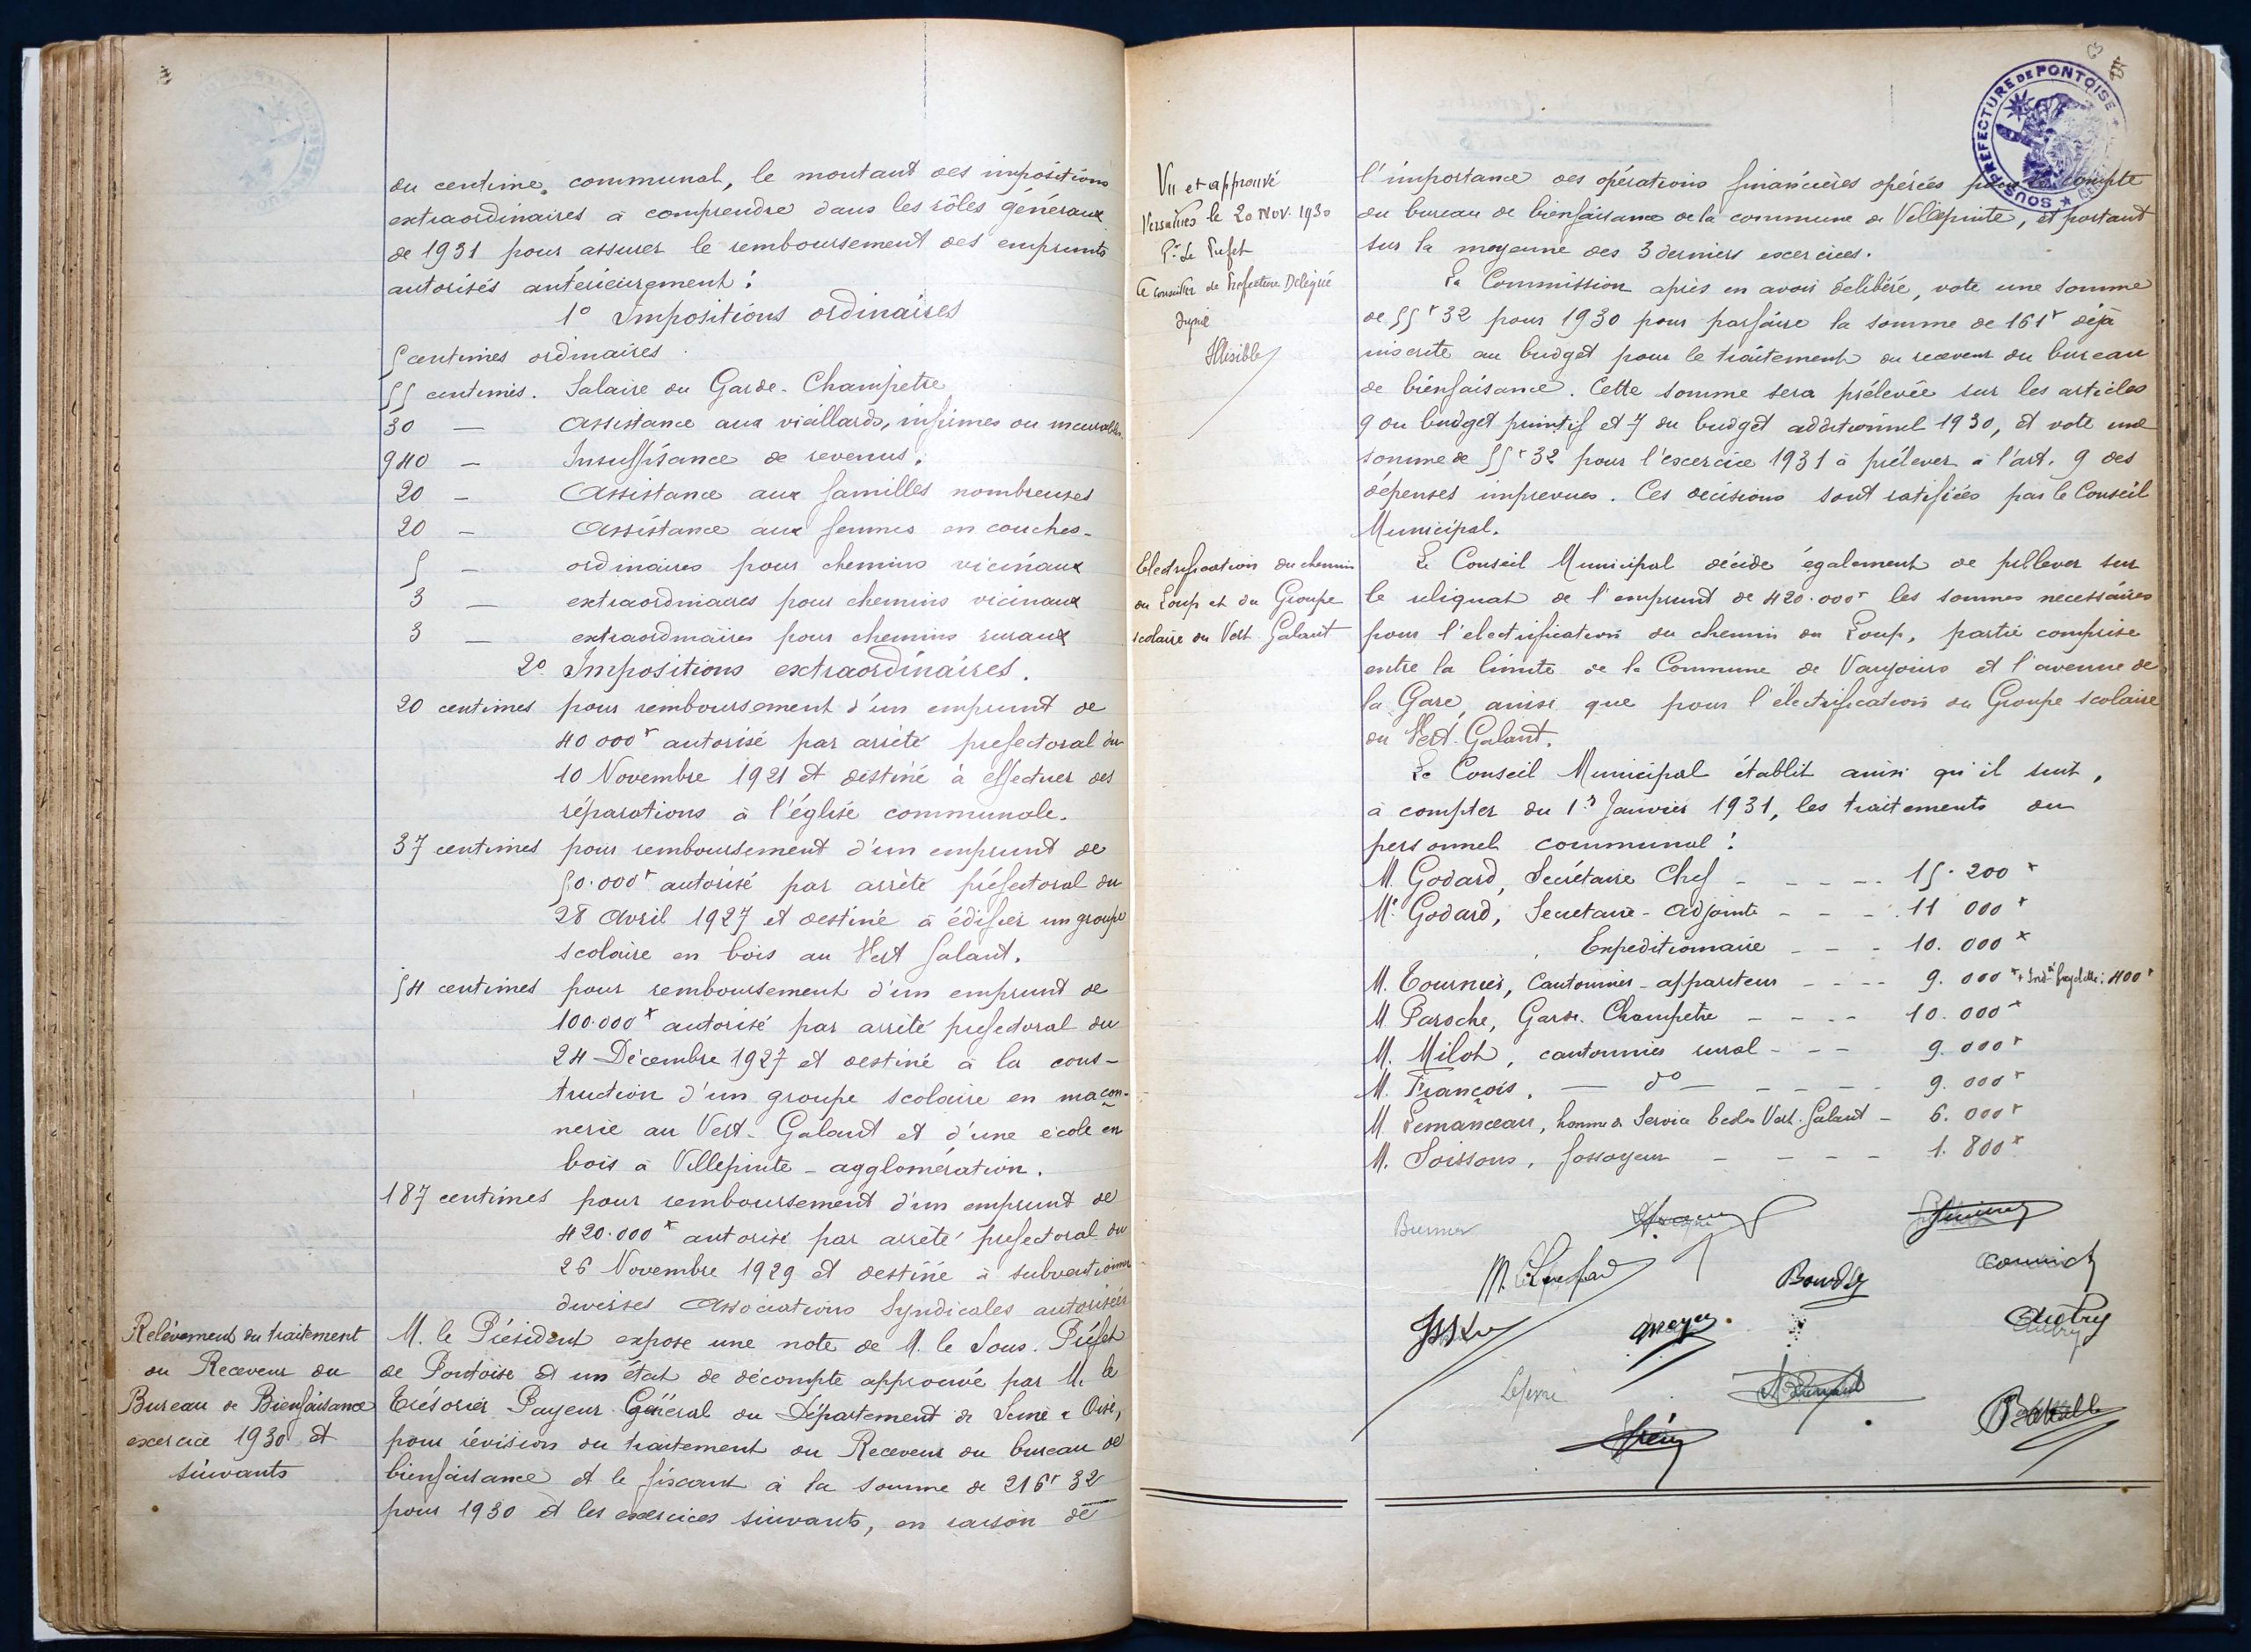 du centime communal, le montant des impositions
extraordinaires à comprendre dans les rôles généraux
de 1931 pour assurer le remboursement des emprunts
autorisés antérieurement :
1° Impositions ordinaires
5 centimes ordinaires
55 centimes. Salaire du Garde-Champetre
30 — Assistance aux vieillards, infirmes ou incurables.
940 — Insuffisance de revenus.
20 — Assistance aux familles nombreuses
20 — Assistance aux femmes en couches.
5 — ordinaires pour chemins vicinaux
3 — extraordinaires pour chemins vicinaux
3 — extraordinaires pour chemins ruraux
2° Impositions extraordinaires.
20 centimes pour remboursement d'un emprunt de
40 000 f autorisé par arrêté prefectoral du
10 Novembre 1921 et destiné à effectuer des
réparations à l'église communale.
37 centimes pour remboursement d'un emprunt de
50.000 f autorisé par arrêté préfectoral du
28 Avril 1927 et destiné à édifier un groupe
scolaire en bois au Vert Galant.
54 centimes pour remboursement d'un emprunt de
100.000 f autorisé par arrêté prefectoral du
24 Décembre 1927 et destiné à la cons-
truction d'un groupe scolaire en maçon-
nerie au Vert-Galant et d'une école en
bois à Villepinte-agglomération.
187 centimes pour remboursement d'un emprunt de
420.000 f autorisé par arrêté prefectoral du
26 Novembre 1929 et destiné à subventionner
diverses Associations Syndicales autorisées
Relèvement du traitement
du Receveur du
Bureau de Bienfaisance
exercice 1930 et
suivants
M. le Président expose une note de M. le Sous-Préfet
de Pontoise et un état de décompte approuvé par M. le
Trésorier Payeur Général du Département de Seine & Oise,
pour révision du traitement du Receveur du bureau de
bienfaisance et le fixant à la somme de 216 f 32
pour 1930 et les exercices suivants, en raison de
SOUS-PRÉFECTURE DE PONTOISE
Vu et approuvé
Versailles le 20 Nov. 1930
Pr Le Préfet
Le Conseiller de Préfecture Délégué
signé
Illisible
l'importance des opérations financières opérées pour le compte
du bureau de bienfaisance de la commune de Villepinte, et portant
sur la moyenne des 3 derniers exercices.
La Commission après en avoir délibéré, vote une somme
de 55 f 32 pour 1930 pour parfaire la somme de 161 f déjà
inscrite au budget pour le traitement du receveur du bureau
de bienfaisance. Cette somme sera prélevée sur les articles
9 du budget primitif et 7 du budget additionnel 1930, et vote une
somme de 55 f 32 pour l'exercice 1931 à prélever à l'art. 9 des
dépenses imprevues. Ces décisions sont ratifiées par le Conseil
Municipal.
Electrification du chemin
du Loup et du Groupe
scolaire du Vert Galant
Le Conseil Municipal décide également de prélever sur
le reliquat de l'emprunt de 420.000 f les sommes necessaires
pour l'electrification du chemin du Loup, partie comprise
entre la limite de la Commune de Vaujours et l'avenue de
la Gare, ainsi que pour l'électrification du Groupe scolaire
du Vert-Galant.
Le Conseil Municipal établit ainsi qu'il suit,
à compter du 1er Janvier 1931, les traitements du
personnel communal :
M. Godard, Secrétaire Chef - - - - 15.200 f
Me Godard, Secretaire-Adjointe - - - 11 000 f
Expeditionnaire - - - 10.000 f
M. Tournier, Cantonnier-appariteur - - - - 9.000 f + Indté bicyclette : 400 f
M. Paroche, Garde Champetre - - - - 10.000 f
M. Milot, cantonnier rural - - - 9.000 f
M. François, — do — - - - - 9.000 f
M. Lemanceau, homme de Service Ecoles Vert-Galant - 6.000 f
M. Soissons, fossoyeur - - - - 1.800 f
Brunner
Bourdy
Cornich
Autry
Lefevre
Bataille